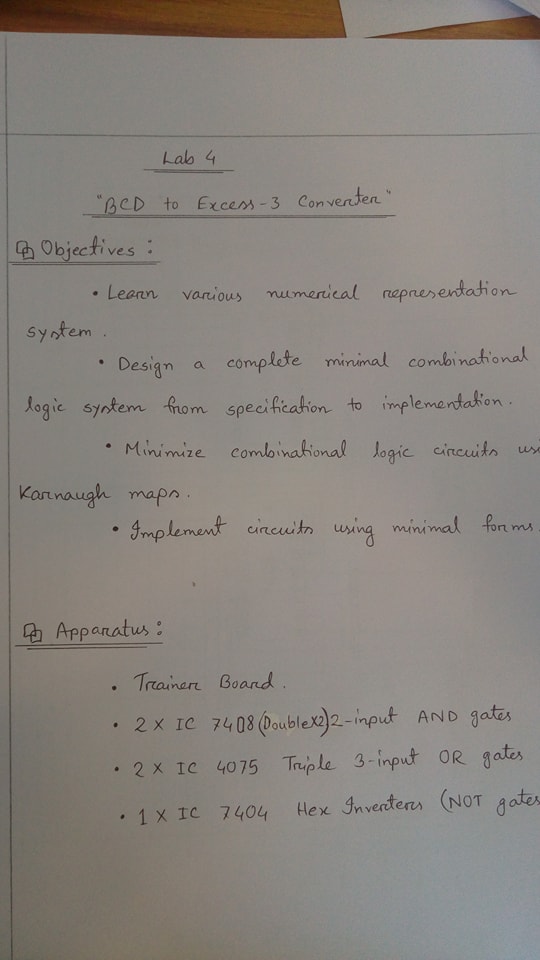 Lab 4
"BCD to Excess-3 Converter"
Objectives :
• Learn various numerical representation
system.
• Design a complete minimal combinational
logic system from specification to implementation.
• Minimize combinational logic circuits usi
Karnaugh maps.
• Implement circuits using minimal forms.
Apparatus :
• Trainer Board.
• 2 X IC 7408 (Double X2) 2-input AND gates
• 2 X IC 4075 Triple 3-input OR gates
• 1 X IC 7404 Hex Inverters (NOT gates